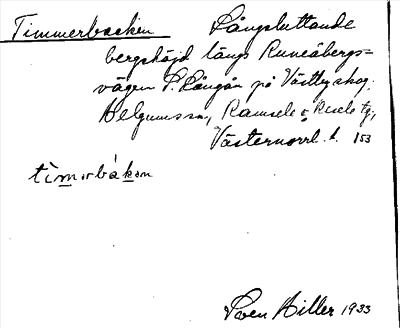 Timmerbacken Långsluttande
bergshöjd längs Runeåbergs=
vägen S. Långån på Västby skog,
Helgums sn, Ramsele o. Resele tg,
Västernorrl. l. 153
timərbakən
Sven Hiller 1933